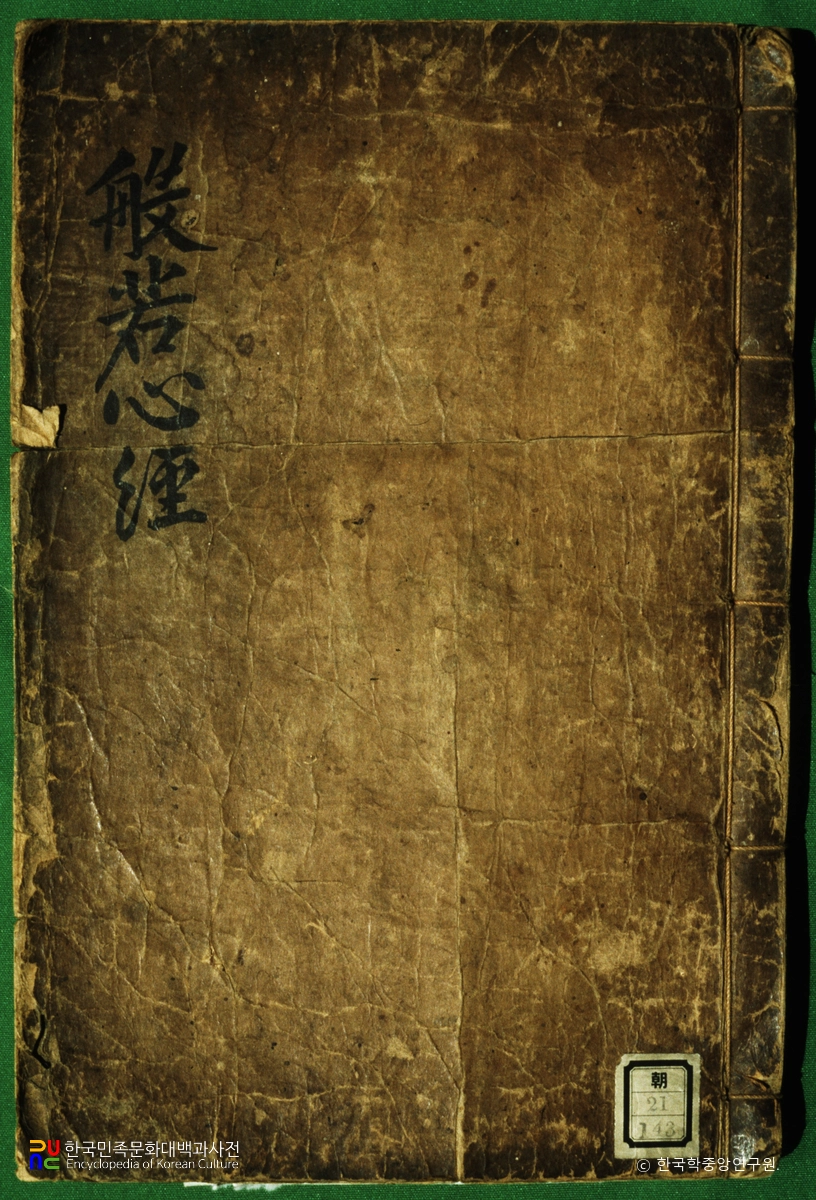 般若心經
朝
21
143
한국민족문화대백과사전
Encyclopedia of Korean Culture
© 한국학중앙연구원.